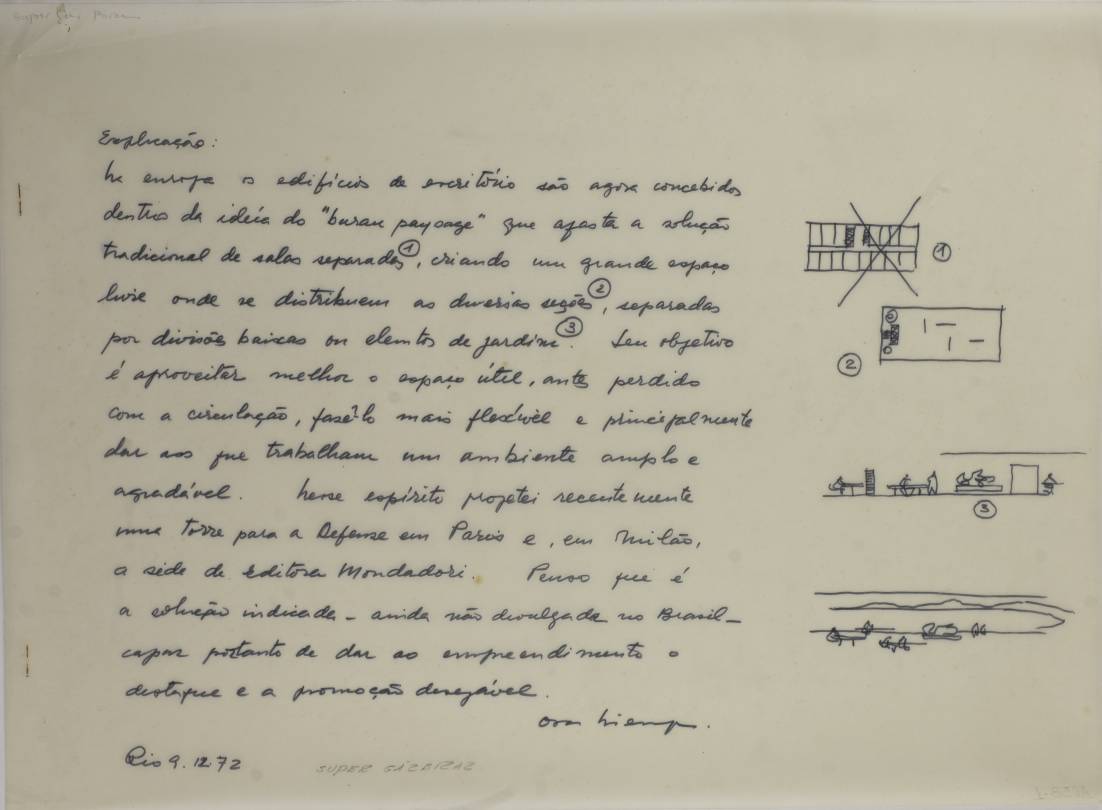 Explicação:
Na europa os edifícios de escritório são agora concebidos
dentro da idéia do "bureau paysage" que afasta a solução
tradicional de salas separadas ①, criando um grande espaço
livre onde se distribuem as diversas seções ②, separadas
por divisões baixas ou elemtos de jardim ③. Seu objetivo
é aproveitar melhor o espaço útil, antes perdido
com a circulação, fazê-lo mais flexível e principalmente
dar aos que trabalham um ambiente amplo e
agradável. Nesse espírito projetei recentemente
uma torre para a Defense em Paris e, em Milão,
a sede da Editora Mondadori. Penso que é
a solução indicada - ainda não divulgada no Brasil -
capaz portanto de dar ao empreendimento o
destaque e a promoção desejável.
Oscar Niemeyer.
Rio 9.12.72
SUPER
①
②
③